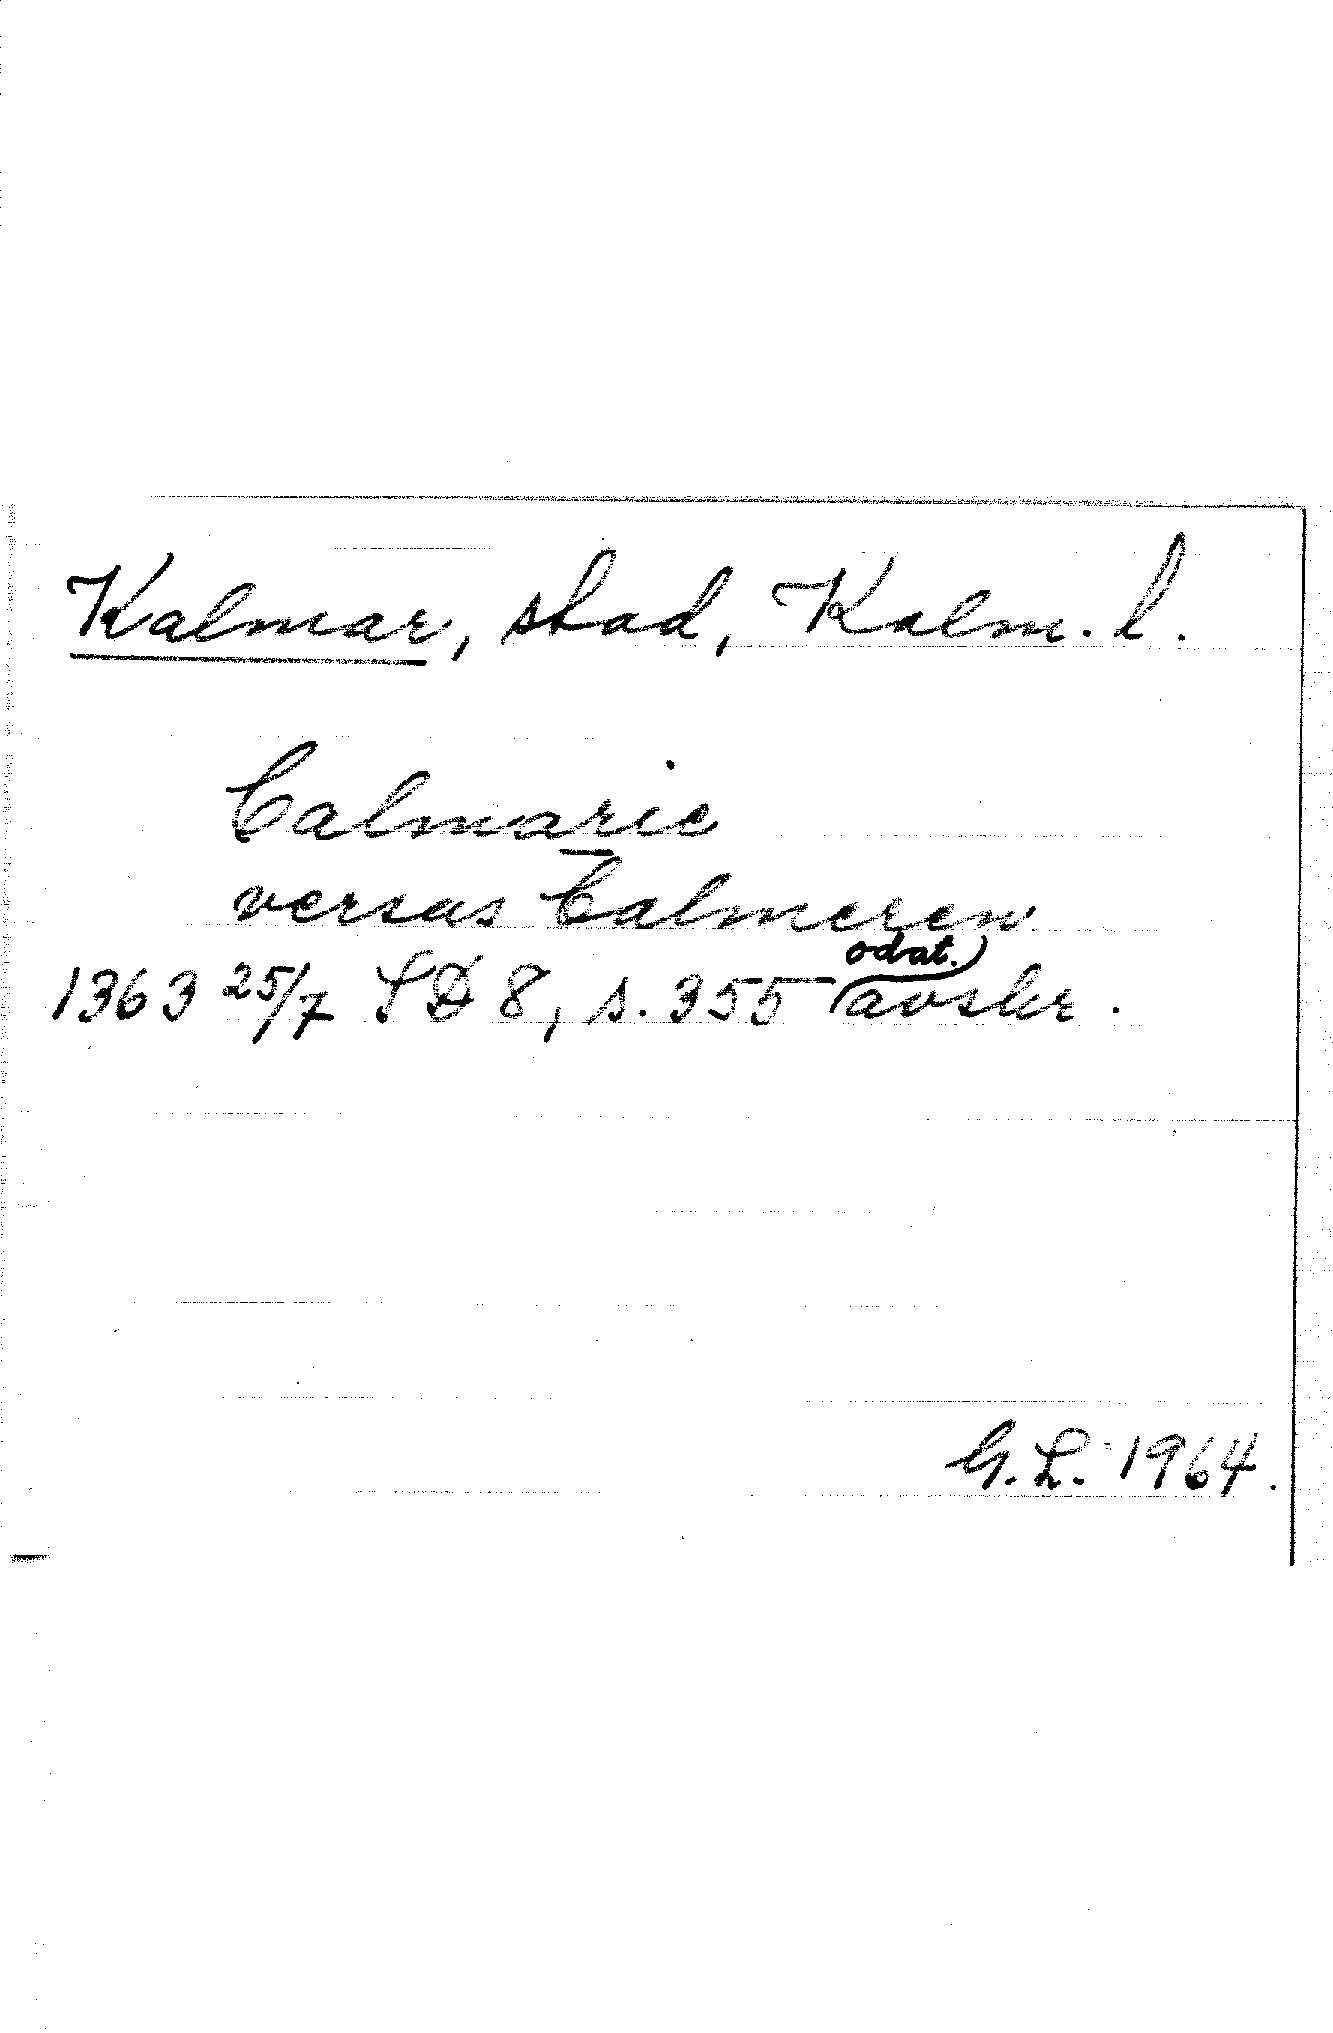 Kalmar, stad, Kalm. l.
Calmarie
versus Calmeren
1363 25/7 SD 8, s. 355 odat. avskr.
G. L. 1964.